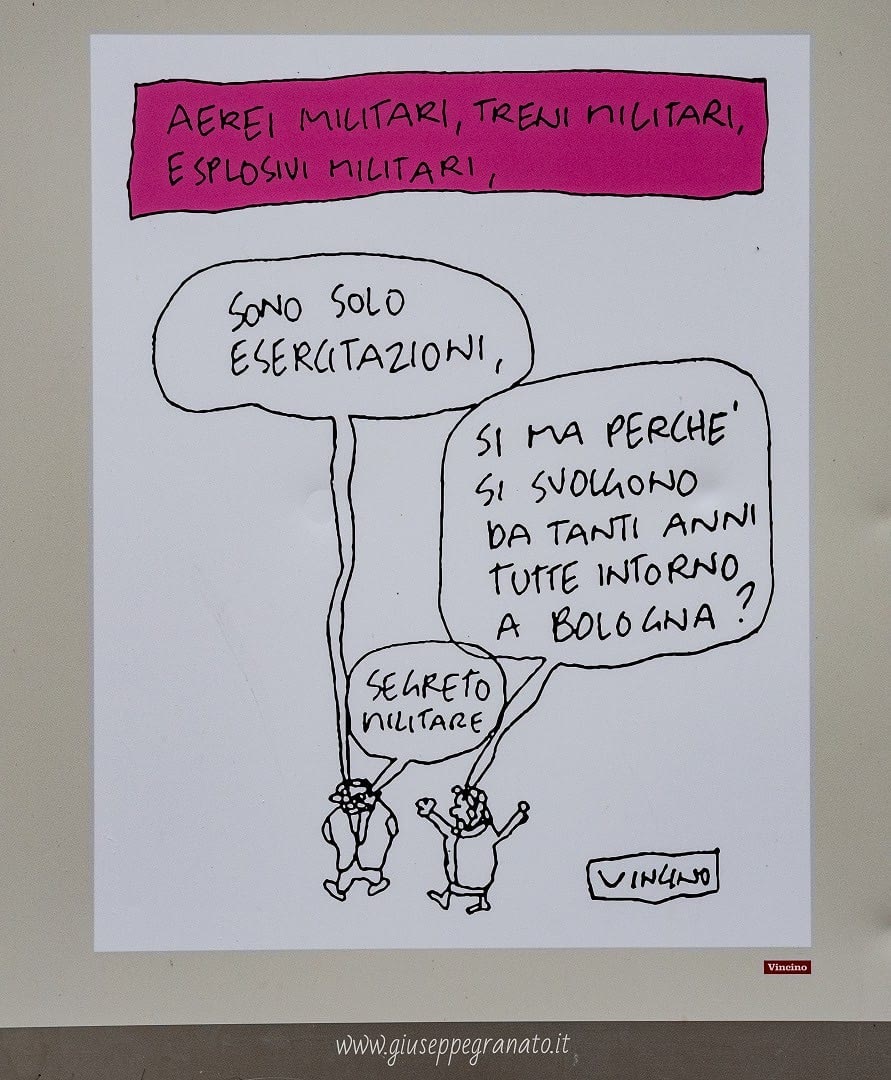 AEREI MILITARI, TRENI MILITARI,
ESPLOSIVI MILITARI,
SONO SOLO
ESERCITAZIONI,
SI MA PERCHE'
SI SVOLGONO
DA TANTI ANNI
TUTTE INTORNO
A BOLOGNA?
SEGRETO
MILITARE
VINCINO
Vincino
www.giuseppegranato.it